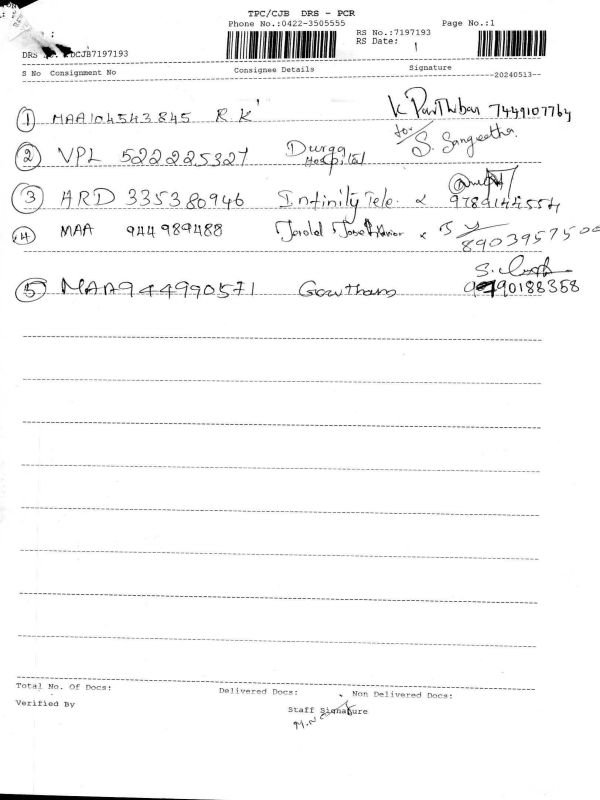 TPC/CJB DRS - PCR
Phone No.:0422-3505555 Page No.:1
RS No.:7197193
RS Date:
DRS No. DCJB7197193
S No Consignment No Consignee Details Signature
20240513
1 MAA104543845 R K K Parthiban 7449107764
2 VPL 522225327 Durga Hospital for S. Sangeetha.
3 ARD 335380946 Infinity Tele.
4 MAA 944989488 Jerold 8903957500
5 MAA944990571 Gowtham 9790188358
Total No. Of Docs: Delivered Docs: Non Delivered Docs:
Verified By Staff Signature